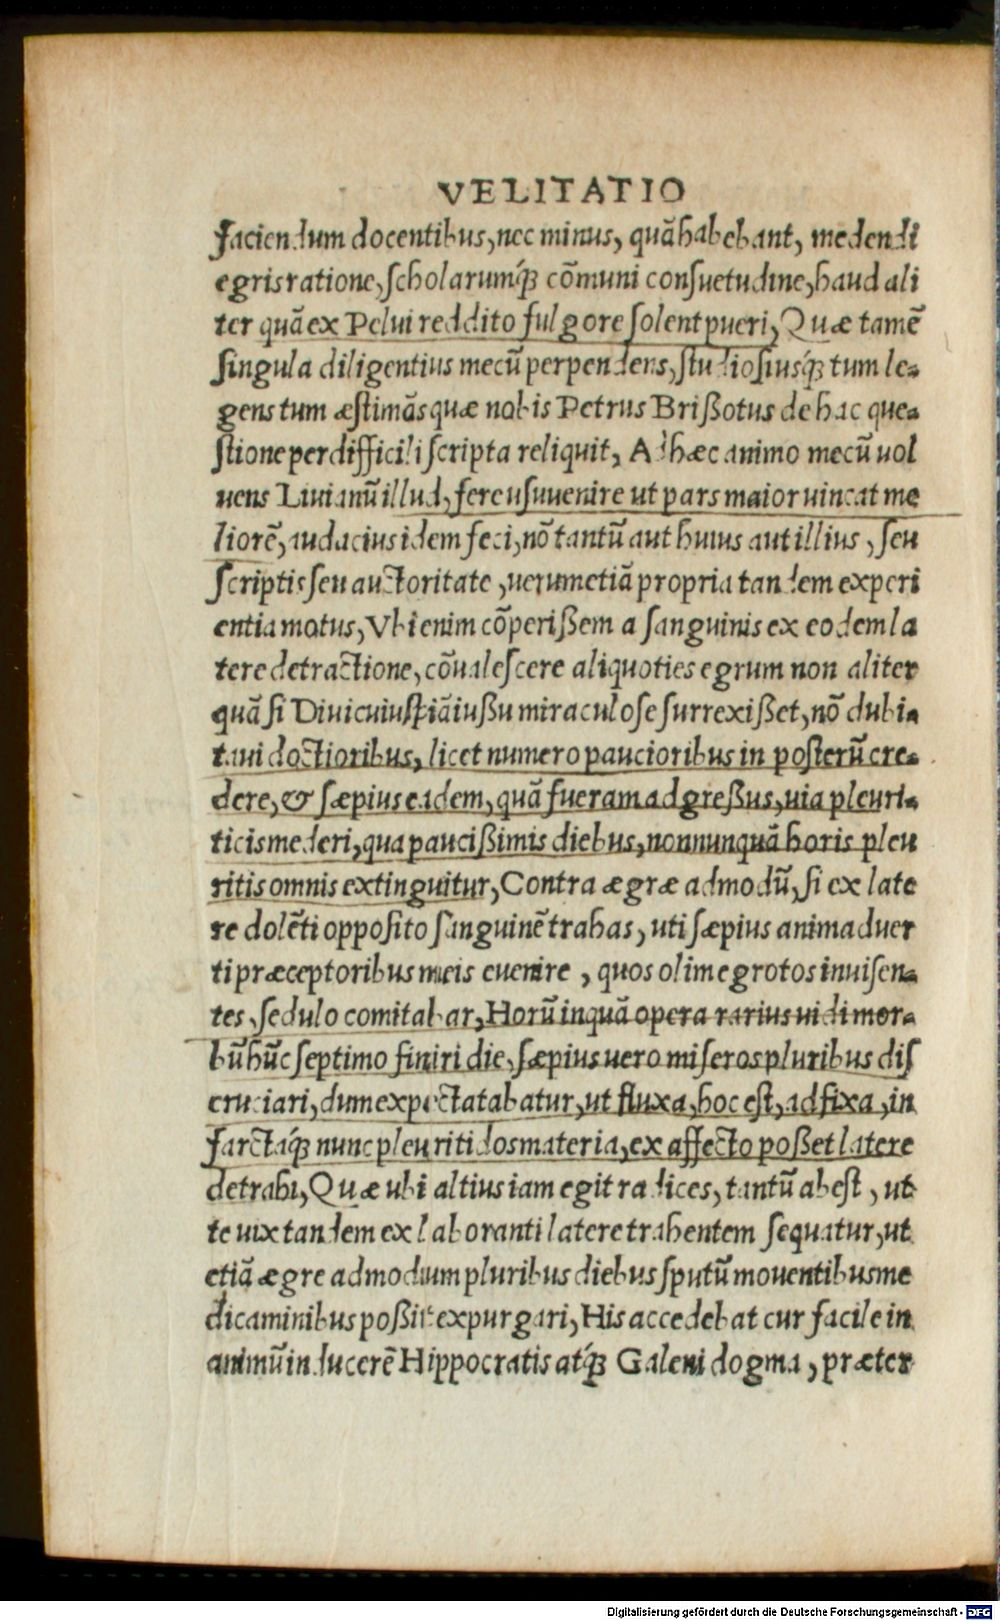 VELITATIO
faciendum docentibus, nec minus, quã habebant, medendi
egris ratione, scholarumq́ꝫ cõmuni consuetudine, haud ali
ter quã ex Pelui reddito fulgore solent pueri, Quæ tamẽ
singula diligentius mecũ perpendens, studiosiusq́ꝫ tum le-
gens tum æstimãs quæ nobis Petrus Brißotus de hac que-
stione perdifficili scripta reliquit, Ad hæc animo mecũ uol
uens Liuianũ illud, fere usuuenire ut pars maior uincat me
liorẽ, audacius idem feci, nõ tantũ aut huius aut illius, seu
scriptis seu auctoritate, uerumetiã propria tandem experi
entia motus, Vbi enim cõperißem a sanguinis ex eodem la
tere detractione, cõualescere aliquoties egrum non aliter
quã si Diui cuiuspiã iußu miraculose surrexißet, nõ dubi-
taui doctioribus, licet numero paucioribus in posterũ cre-
dere, & sæpius eadem, quã fueram adgreßus, uia pleuri-
ticis mederi, qua paucißimis diebus, nonnunquã horis pleu
ritis omnis extinguitur, Contra ægræ admodũ, si ex late
re dolẽti opposito sanguinẽ trahas, uti sæpius animaduer
ti præceptoribus meis euenire, quos olim egrotos inuisen-
tes, sedulo comitabar, Horũ inquã opera rarius uidi mor-
bũ hũc septimo finiri die, sæpius uero miseros pluribus dis
cruciari, dum expectatabatur, ut fluxa, hoc est, adfixa, in
farctaq́ꝫ nunc pleuritidos materia, ex affecto poßet latere
detrahi, Quæ ubi altius iam egit radices, tantũ abest, ut
te uix tandem ex laboranti latere trahentem sequatur, ut
etiã ægre admodum pluribus diebus sputũ mouentibus me
dicaminibus poßit expurgari, His accedebat cur facile in
animũ inducerẽ Hippocratis atq́ꝫ Galeni dogma, præter
Digitalisierung gefördert durch die Deutsche Forschungsgemeinschaft - DFG